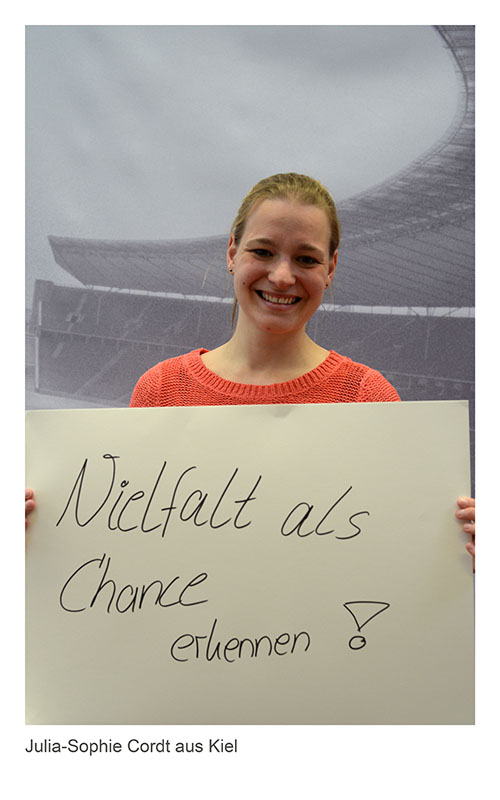 Vielfalt als
Chance
erkennen!
Julia-Sophie Cordt aus Kiel